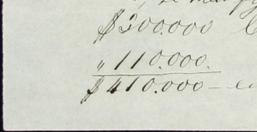 $300.000
" 110.000.
$410.000 –